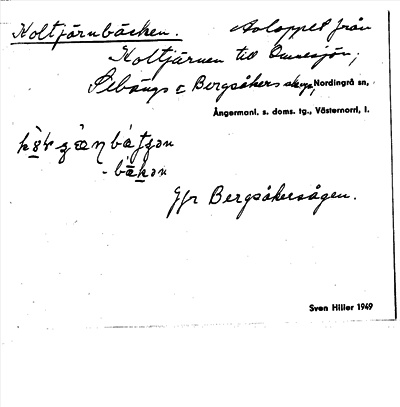 Koltjärnbäcken. Avloppet från
Koltjärnen till Omnesjön;
Sebångs o Bergsåkers skogs, Nordingrå sn,
Ångermanl. s. doms. tg., Västernorrl. l.
Jfr Bergsåkersågen.
Sven Hiller 1949